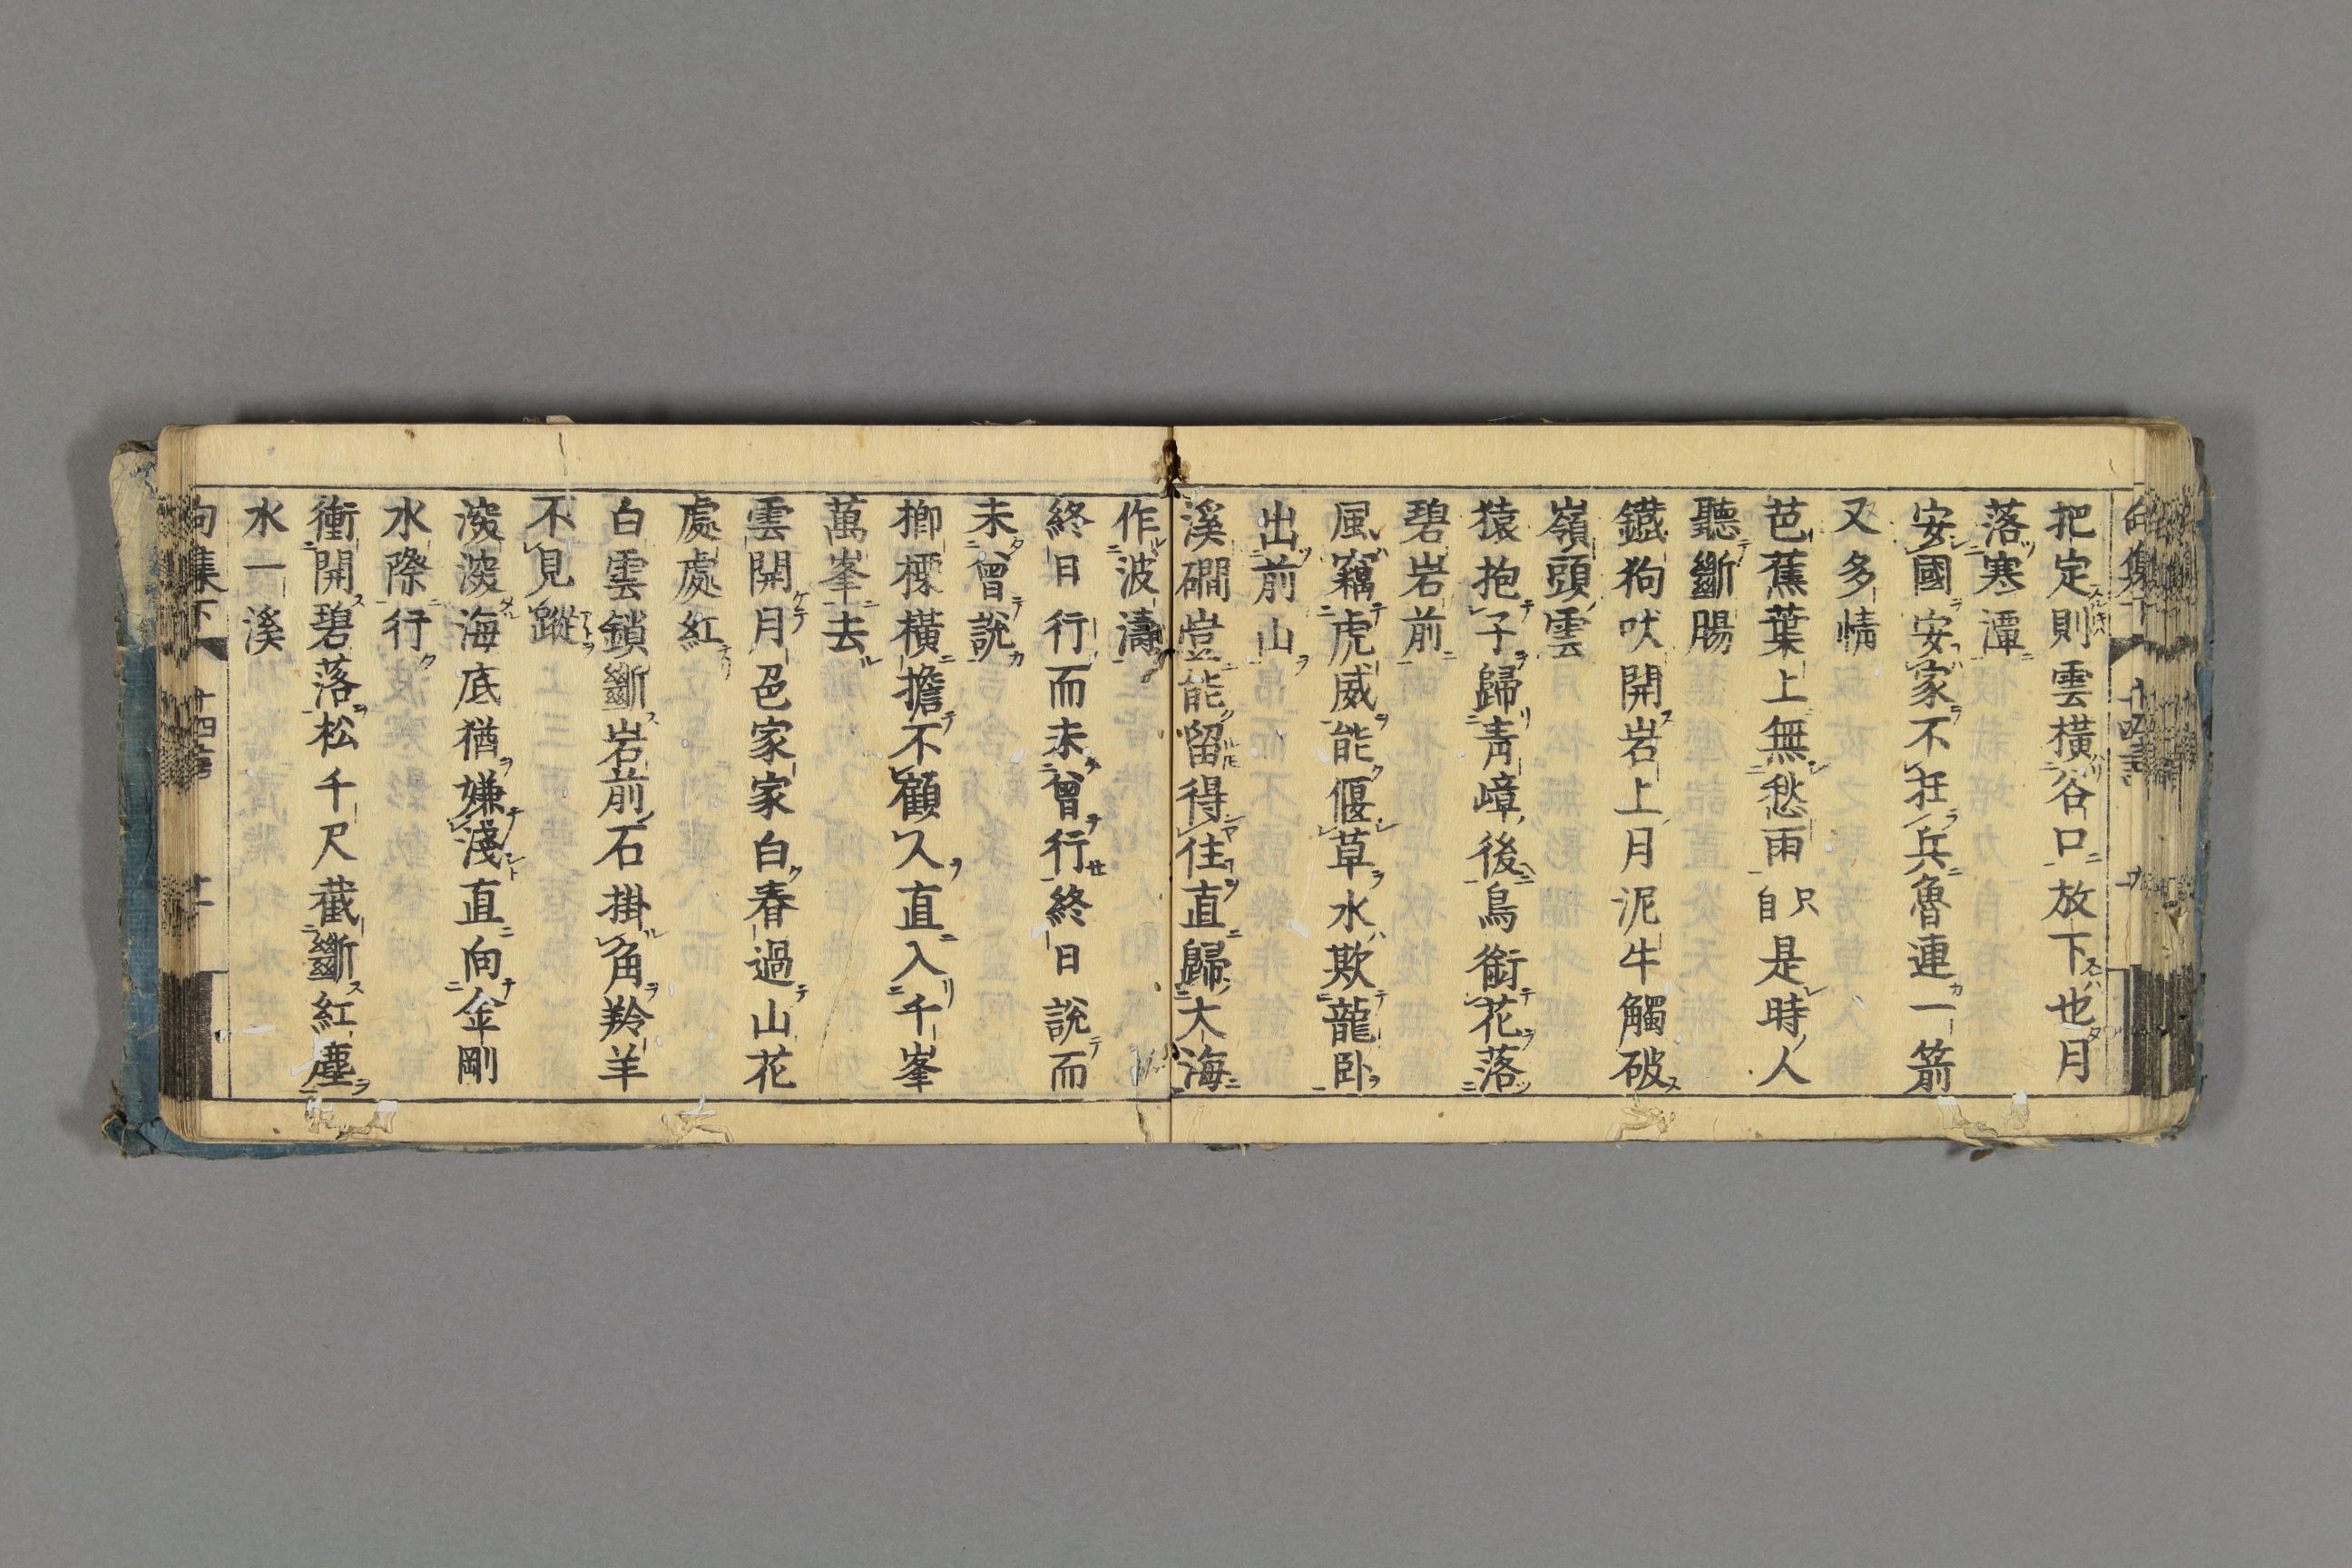 把定則雲橫谷口放下也月
落寒潭
安國安家不在兵魯連一箭
又多情
芭蕉葉上無愁雨只自是時人
聽斷腸
鐵狗吠開岩上月泥牛觸破
嶺頭雲
猿抱子歸靑嶂後鳥銜花落
碧岩前
風竊虎威能偃草水欺龍卧
出前山
溪磵豈能留得住直歸大海
作波濤
終日行而未曾行終日說而
未曾說
擳標橫擔不顧人直入千峯
萬峯去
雲開月色家家白春過山花
處處紅
白雲鎖斷岩前石掛角羚羊
不見蹤
深深海底猶嫌淺直向金剛
水際行
衝開碧落松千尺截斷紅塵
水一溪
句集下 十四言